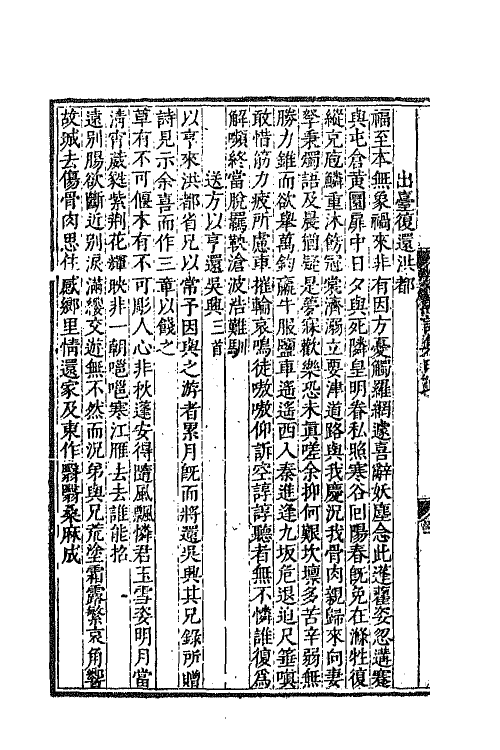 出臺復還洪都
福至本無象禍來非有因方憂觸羅網遽喜辭妖塵念此蓬藋姿忽遘蹇
與屯倉黄圜扉中日夕與死隣皇明眷私照寒谷回陽春旣免在滌牲復
縱充庖麟重沐飭冠裳濟溺立要津道路與我慶況我骨肉親歸來向妻
孥秉燭語及晨猶疑是夢寐歡樂恐未真嗟余抑何艱坎壈多苦辛弱無
勝力錐而欲舉萬鈞羸牛服鹽車遥遥西入秦進逢九坂危退迫尺箠嗔
敢惜筋力疲所慮車摧輪哀鳴徒嗷嗷仰訴空諄諄聽者無不憐誰復爲
解嚬終當脫羈靮滄波浩難馴
送方以亨還吳興三首
以亨來洪都省兄以常予因與之游者累月旣而將還吳興其兄錄所贈
詩見示余喜而作三章以餞之
草有不可偃木有不可彫人心非秋蓬安得隨風飄憐君玉雪姿明月當
清宵葳蕤紫荆花輝映非一朝嗈嗈寒江雁去去誰能招
遠別腸欲斷近別淚滿纓交遊無不然而況弟與兄荒塗霜露繁哀角響
故城去傷骨肉思住感鄉里情還家及東作翳翳桑麻成